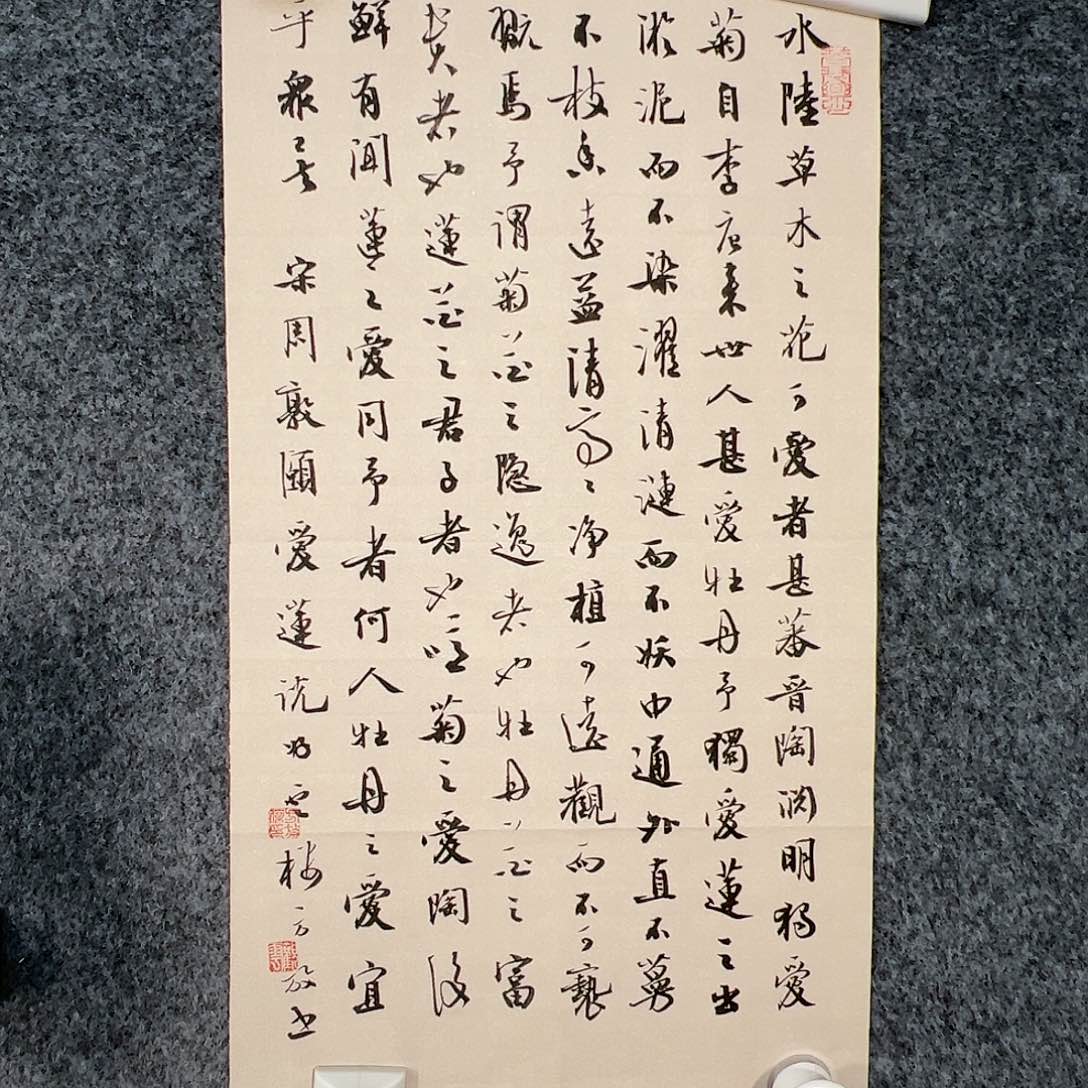 水陸草木之花可愛者甚蕃晋陶渊明獨愛
菊自李唐来世人甚愛牡丹予獨愛蓮之出
淤泥而不染濯清漣而不妖中通外直不蔓
不枝香遠益清亭々净植可遠觀而不可褻
翫焉予謂菊花之隐逸者也牡丹花之富
貴者也蓮花之君子者也噫菊之愛陶後
鮮有聞蓮之愛同予者何人牡丹之愛宜
乎衆矣 宋周敦頤愛蓮说 樓 书